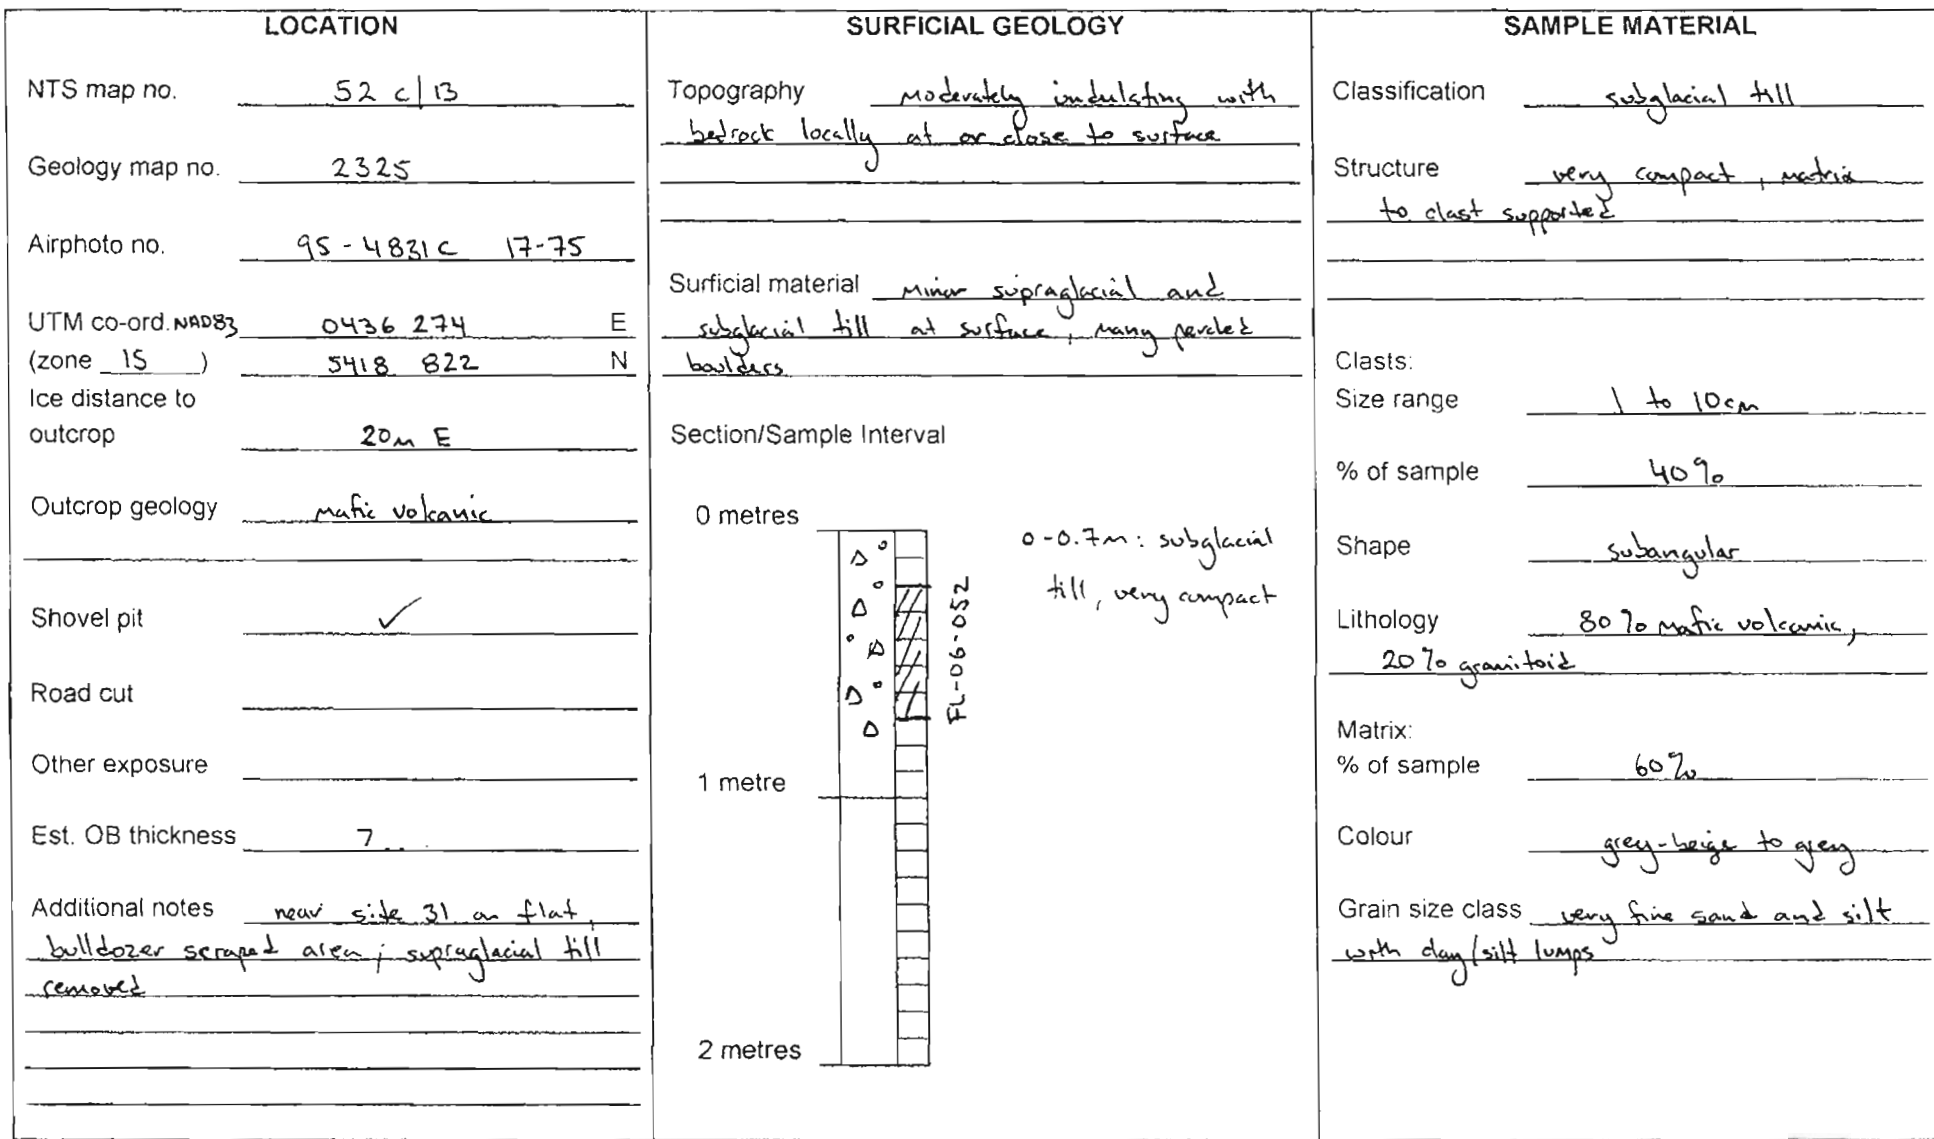 LOCATION
NTS map no. 52 c/13
Geology map no. 2325
Airphoto no. 95-4831c 17-75
UTM co-ord. NAD83 0436 274 E
(zone 15 ) 5418 822 N
Ice distance to
outcrop 20m E
Outcrop geology mafic volcanic
Shovel pit ✓
Road cut
Other exposure
Est. OB thickness
Additional notes near site 31 on flat,
bulldozer scraped area; supraglacial till
removed
SURFICIAL GEOLOGY
Topography Moderately undulating with
bedrock locally at or close to surface
Surficial material Minor supraglacial and
subglacial till at surface, many perched
boulders
Section/Sample Interval
0 metres
0-0.7m: subglacial
till, very compact
FL-06-052
1 metre
2 metres
SAMPLE MATERIAL
Classification subglacial till
Structure very compact, matrix
to clast supported
Clasts:
Size range 1 to 10cm
% of sample 40%
Shape subangular
Lithology 80% mafic volcanic,
20% granitoid
Matrix:
% of sample 60%
Colour grey-beige to grey
Grain size class very fine sand and silt
with clay/silt lumps